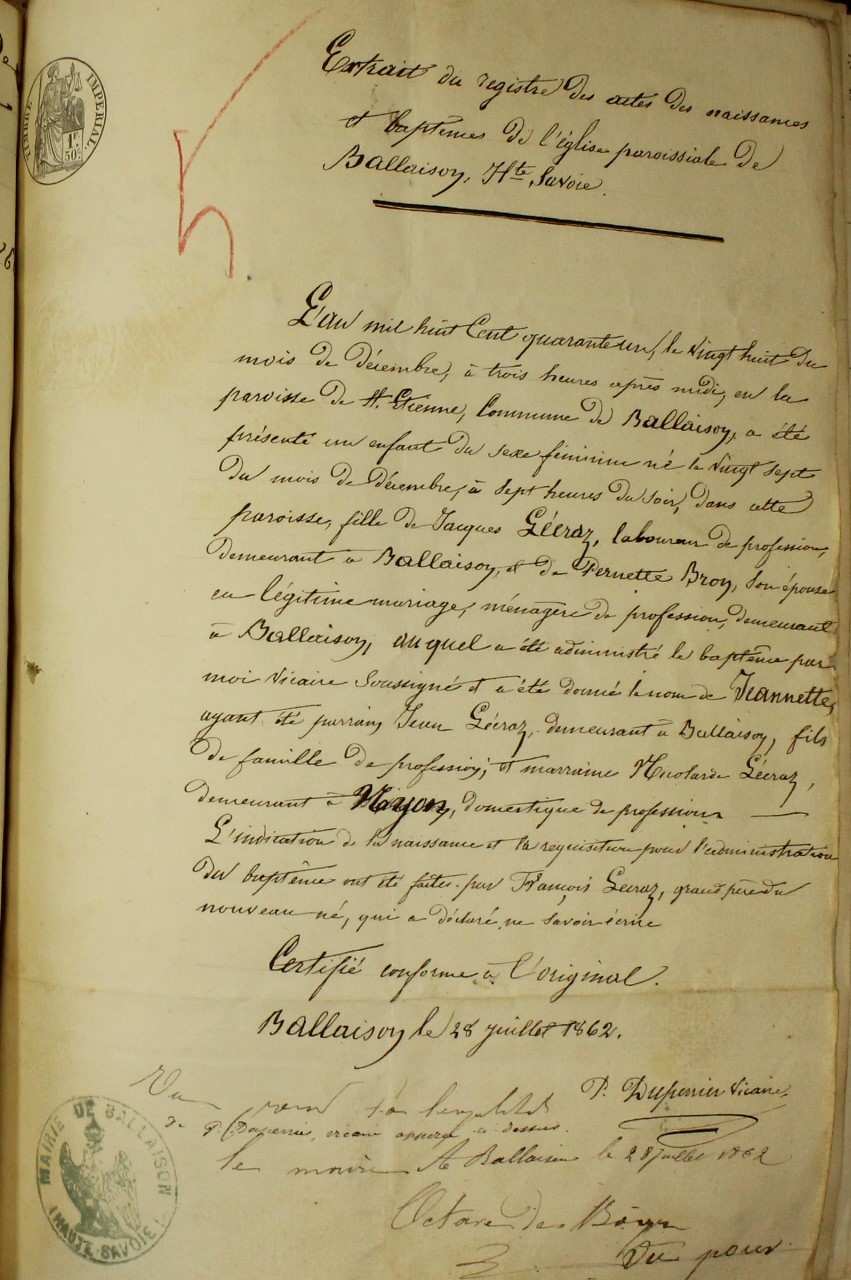 TIMBRE IMPERIAL
1F 50c
Extrait du registre des actes des naissances
et baptêmes de l'église paroissiale de
Ballaison, Hte Savoie.
L'an mil huit Cent quarante un, le vingt huit du
mois de décembre, à trois heures après midi, en la
paroisse de St. Etienne, Commune de Ballaison, a été
présenté un enfant du sexe féminin né le vingt sept
du mois de décembre, à sept heures du soir, dans cette
paroisse, fille de Jacques Lécraz, laboureur de profession,
demeurant à Ballaison, et de Pernette Broy, son épouse
en légitime mariage, ménagère de profession, demeurant
à Ballaison, auquel a été administré le baptême par
moi Vicaire Soussigné et a été donné le nom de Jeannette,
ayant été parrain, Jean Lécraz, demeurant à Ballaison, fils
de famille de profession; et marraine Nicolarde Lécraz,
demeurant à Niyon, domestique de profession
L'indication de la naissance et la requisition pour l'administration
du baptême ont été faites par François Lecraz, grand père du
nouveau né, qui a déclaré ne savoir écrire
Certifié conforme à l'original.
Ballaison le 28 juillet 1862.
P. Duperrier Vicaire
Vu pour
de P. Duperrier, vicaire apposée ci dessus.
le maire A Ballaison le 28 juillet 1862
Octave de
Vu pour
MAIRIE DE BALLAISON
(HAUTE-SAVOIE)